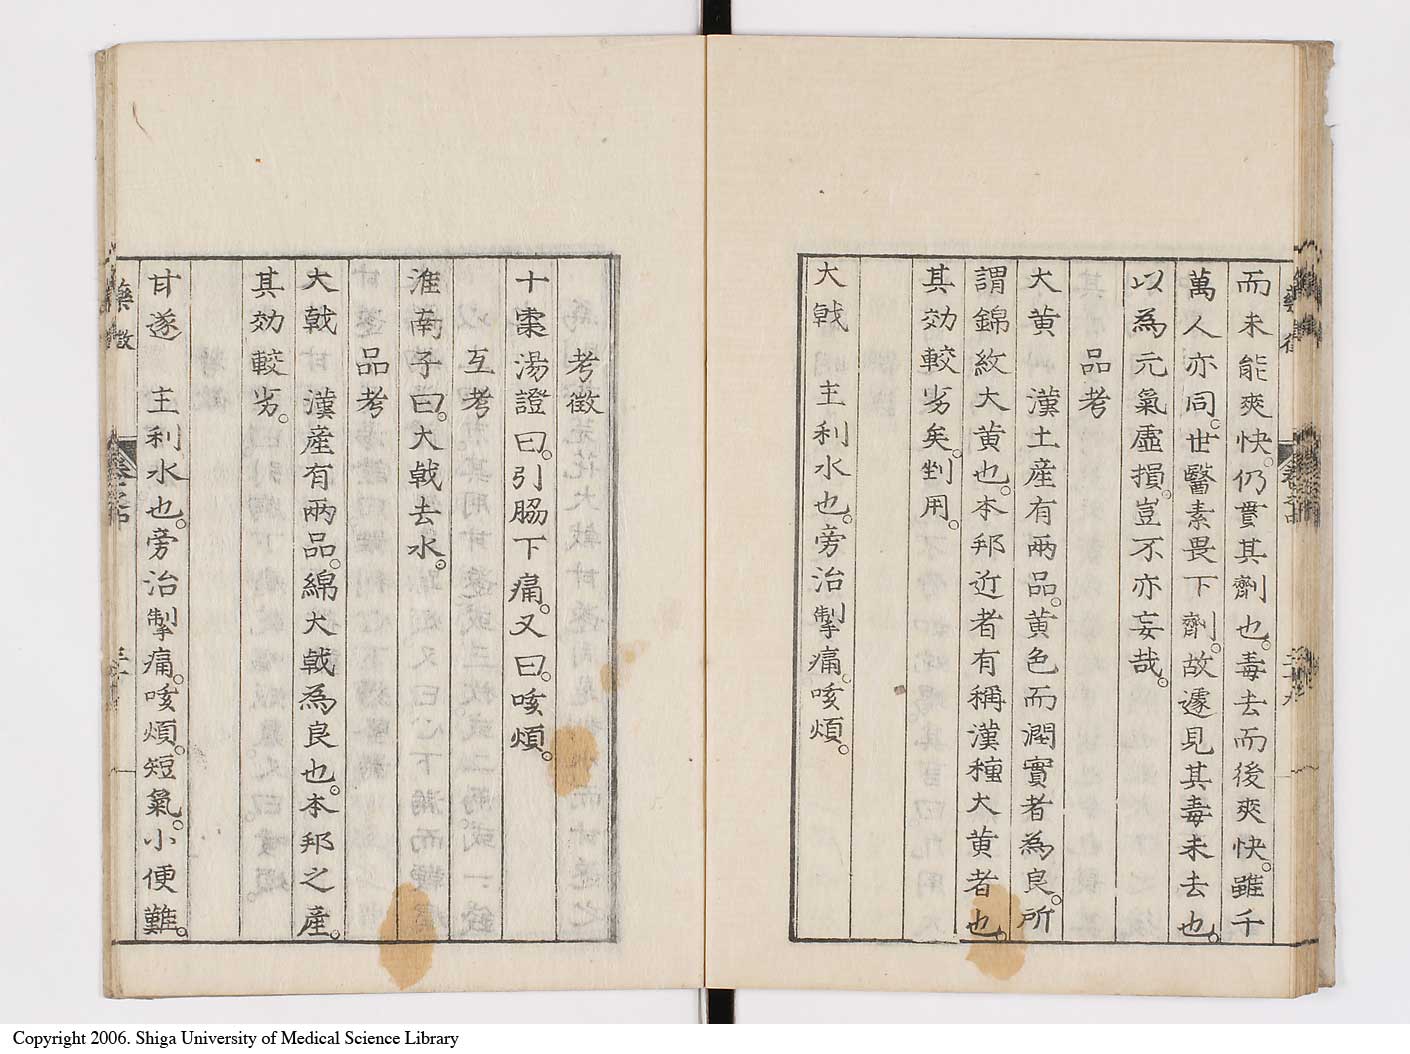 而未能爽快。仍貫其劑也。毒去而後爽快。雖千
萬人亦同。世醫素畏下劑。故遽見其毒未去也。
以為元氣虛損。豈不亦妄哉。
品考
大黄 漢土產有兩品。黄色而潤實者為良。所
謂錦紋大黄也。本邦近者有稱漢種大黄者也。
其効較劣矣。剉用。
大戟 主利水也。旁治掣痛。咳煩。
考徵
十棗湯證曰。引脇下痛。又曰。咳煩。
互考
淮南子曰。大戟去水。
品考
大戟 漢產有兩品。綿大戟為良也。本邦之產。
其効較劣。
甘遂 主利水也。旁治掣痛。咳煩。短氣。小便難。
藥徵
Copyright 2006. Shiga University of Medical Science Library